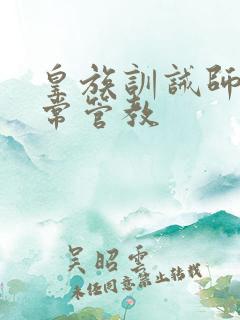 皇族訓誡師日
常管教
吴昭雲
未经同意禁止转载